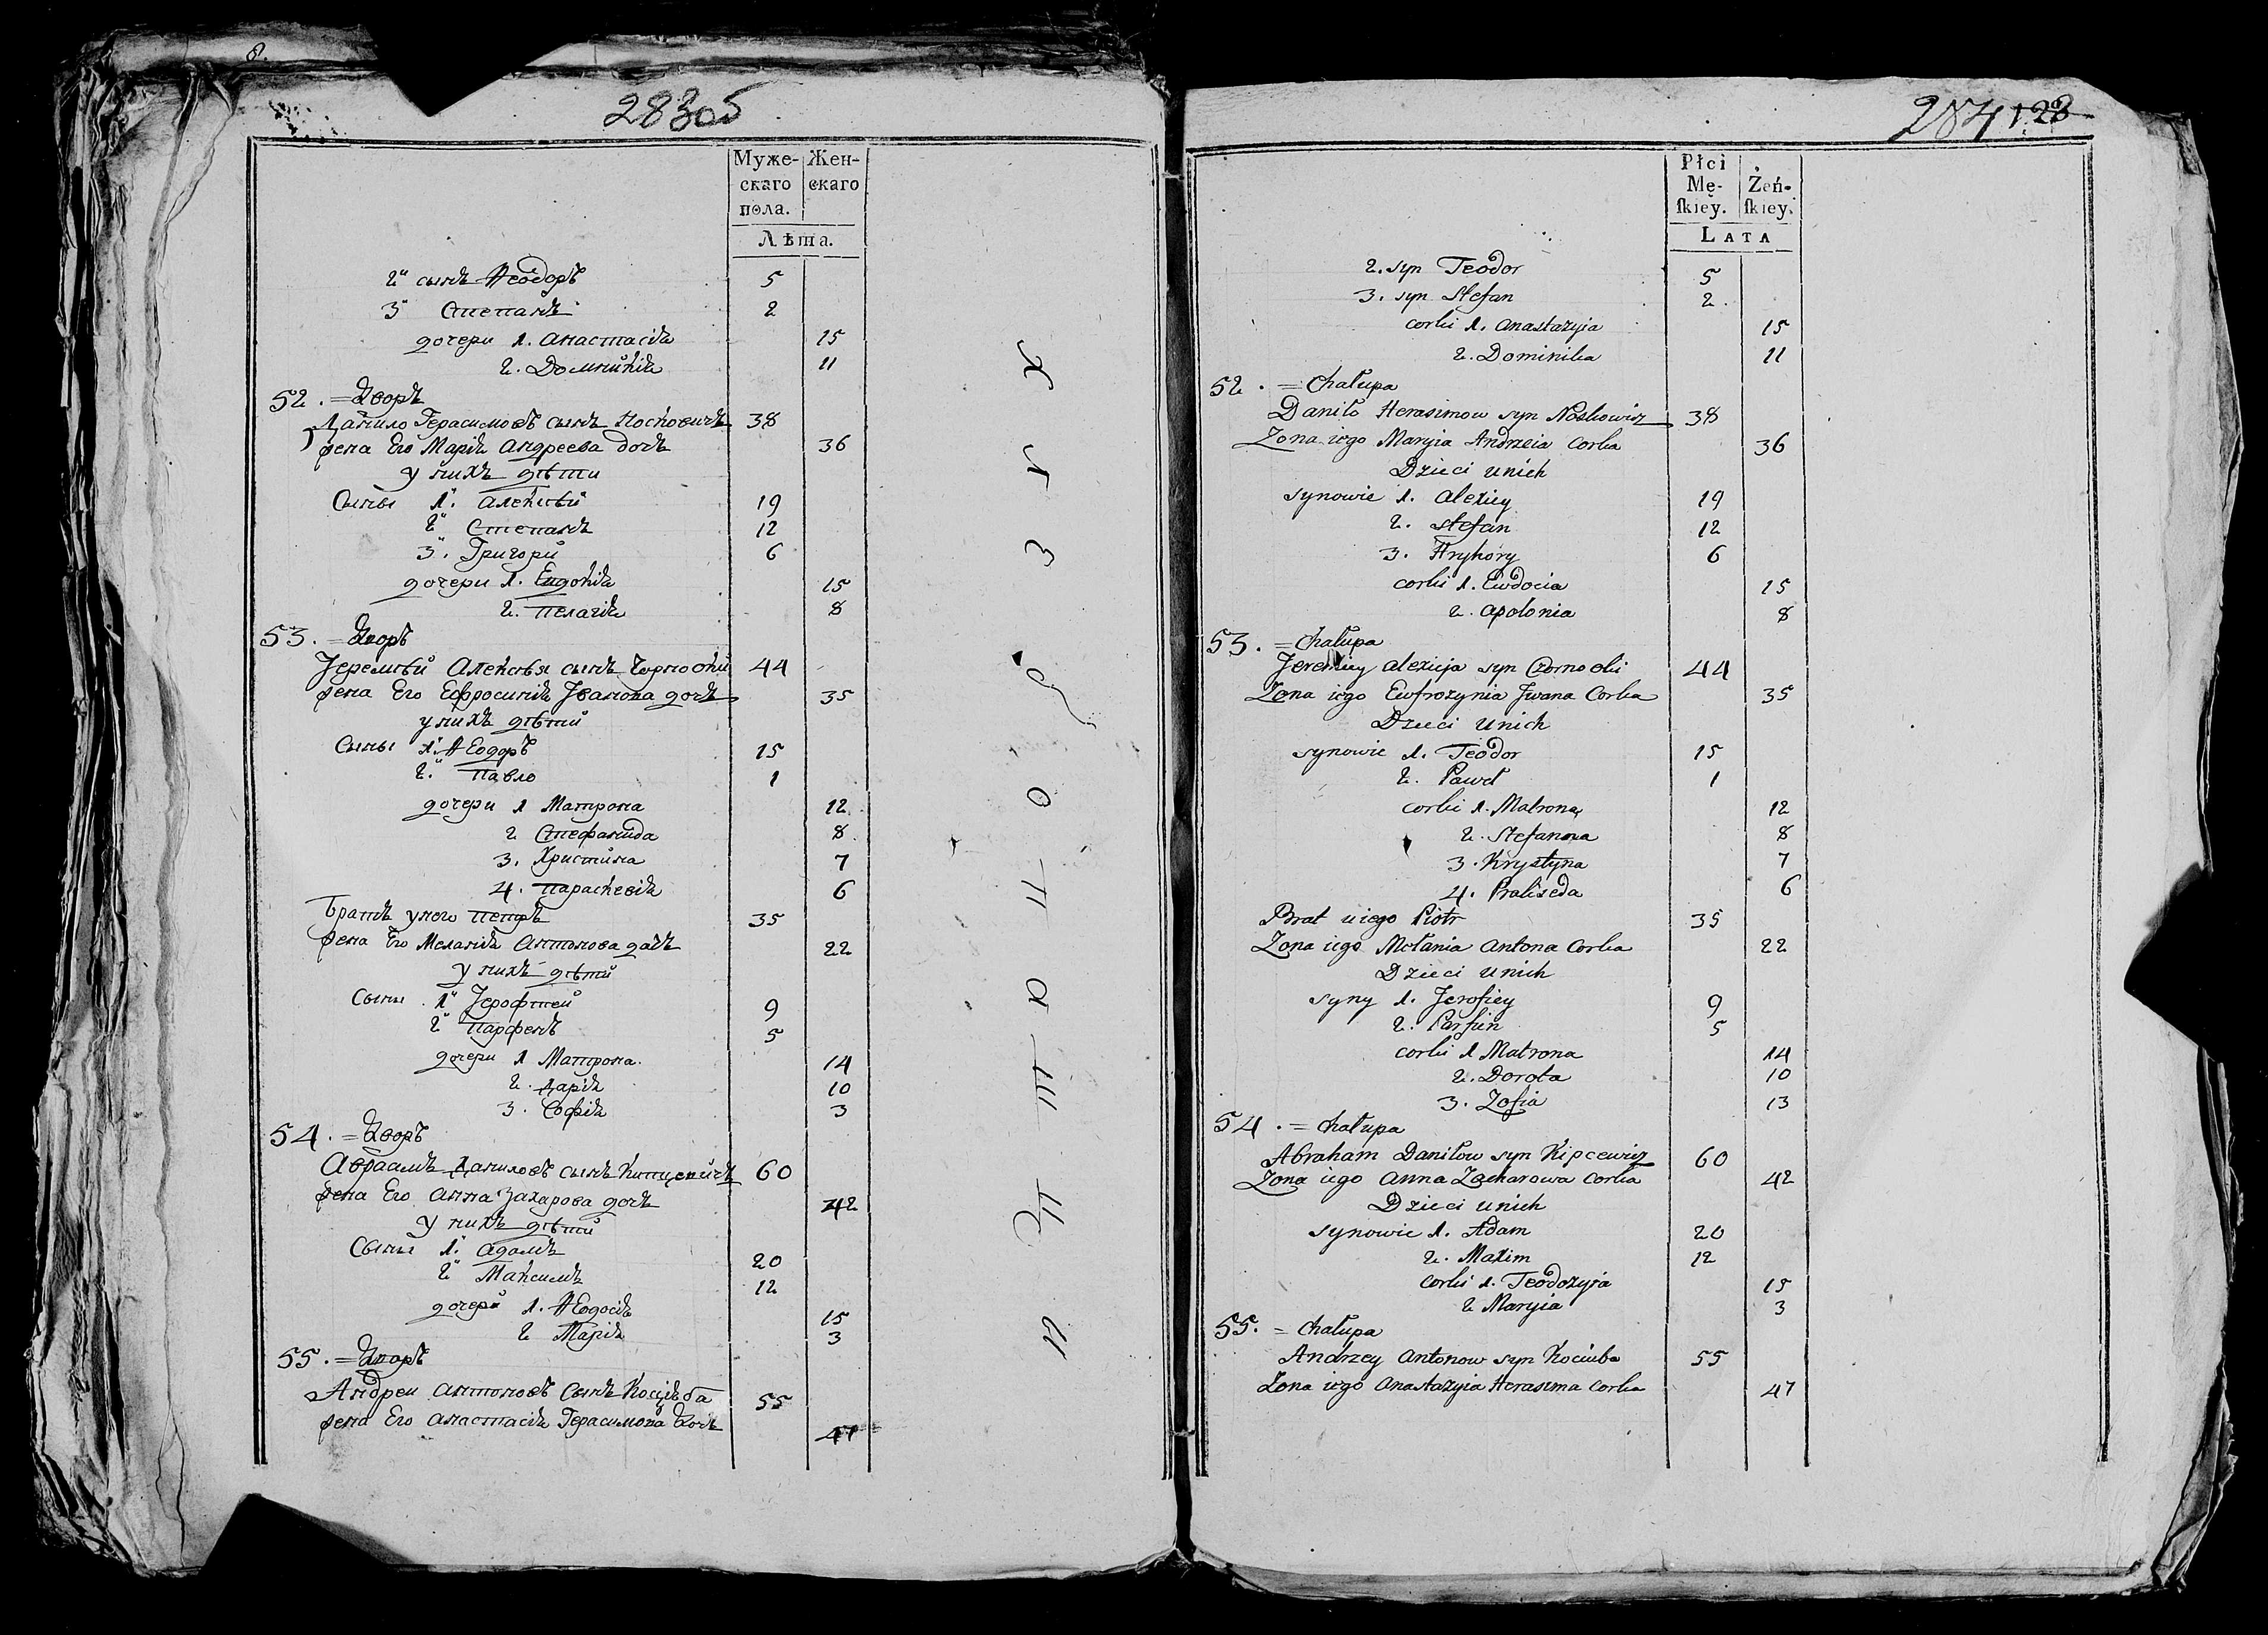 8.
283об
Муже-
скаго
пола.
Жен-
скаго
Лѣта.
2й сынъ Ѳеодоръ 5
3й Степанъ 2
дочери 1. Анастасія 15
2. Доминикія 11
52. = Дворъ
Данило Герасимовъ сынъ Носковичъ 38
жена Его Марія Андреева дочь 36
у нихъ дѣти
Сыны 1й Алексѣй 19
2й Степанъ 12
3й Григорй 6
дочери 1. Евдокія 15
2. Пелагія 8
53. = Дворъ
Іеремѣй Алексѣя сынъ Чорноокй 44
жена Его Ефросинія Іванова дочь 35
у нихъ дѣти
Сыны 1й Ѳеодоръ 15
2й Павло 1
дочери 1 Матрона 12
2 Стефанида 8
3. Христина 7
4. Параскевія 6
Братъ унего Петръ 35
жена Его Меланія Антонова дочь 22
у нихъ дѣти
Сыны 1й Іерофтей 9
2й Парфенъ 5
дочери 1 Матрона 14
2. Дарія 10
3. Софія 3
54. = Дворъ
Авраамъ Даниловъ сынъ Кипцевичъ 60
жена Его Анна Захарова дочь 42
у нихъ дѣти
Сыны 1й Адамъ 20
2й Максимъ 12
дочери 1. Ѳеодосія 15
2 Марія 3
55. = Дворъ
Андреи Антоновъ Сынъ Коцюба 55
жена Его Анастасія Герасимова дочь 47
284 128
Płci
Mę-
skiey.
Żeń-
skiey.
LATA
2. syn Teodor 5
3. syn Stefan 2.
corki 1. Anastazyia 15
2. Dominika 11
52. = Chałupa
Daniło Herasimow syn Noskowicz 38
Zona iego Maryia Andrzeia Corka 36
Dzieci unich
synowie 1. Alexiey 19
2. Stefan 12
3. Hryhory 6
corki 1. Ewdocia 15
2. Apolonia 8
53. = Chałupa
Jeremiey Alexieja syn Czornooki 44
Zona iego Ewfrozynia Jwana Corka 35
Dzieci Unich
synowie 1. Teodor 15
2. Paweł 1
corki 1. Matrona 12
2. Stefanna 8
3. Krystyna 7
4. Prakseda 6
Brat uiego Piotr 35
Zona iego Mełania Antona Corka 22
Dzieci Unich
syny 1. Jerofiey 9
2. Parfun 5
corki 1 Matrona 14
2. Dorota 10
3. Zofia 13
54. = Chałupa
Abraham Daniłow syn Kipcewicz 60
Zona iego Anna Zacharowa Corka 42
Dzieci unich
synowie 1. Adam 20
2. Maxim 12
corki 1. Teodozyia 15
2 Maryia 3
55. = Chałupa
Andrzey Antonow syn Kociuba 55
Zona iego Anastazyia Herasima Corka 47